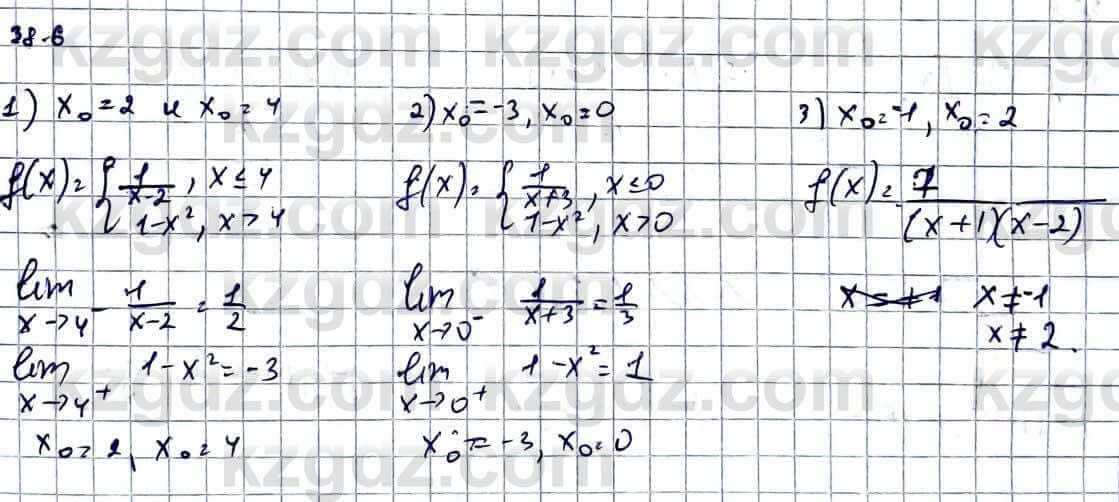 38.6
1) x₀ = 2 и x₀ = 4
f(x) = { 1/(x-2), x ≤ 4
1-x², x > 4
lim x→4⁻ 1/(x-2) = 1/2
lim x→4⁺ 1-x² = -3
x₀ = 2, x₀ = 4
2) x₀ = -3, x₀ = 0
f(x) = { 1/(x+3), x ≤ 0
1-x², x > 0
lim x→0⁻ 1/(x+3) = 1/3
lim x→0⁺ 1-x² = 1
x₀ = -3, x₀ = 0
3) x₀ = -1, x₀ = 2
f(x) = 7/((x+1)(x-2))
x ≠ -1
x ≠ 2.
kzgdz.com